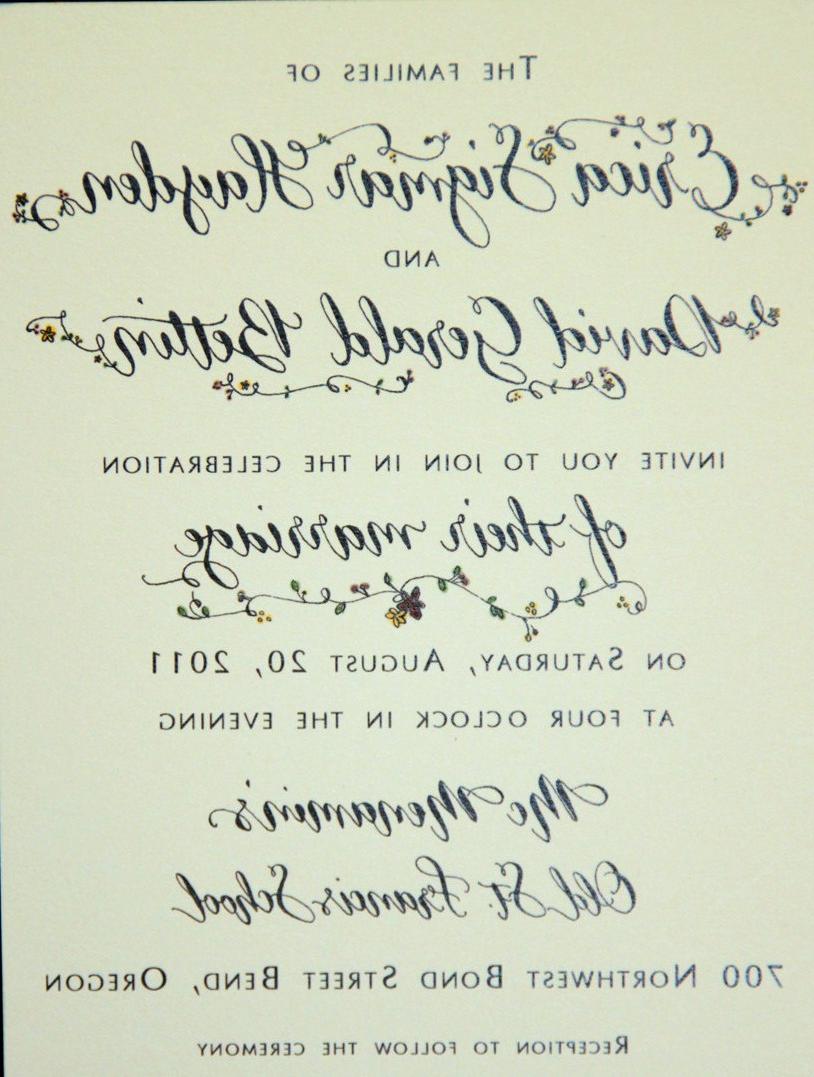 THE FAMILIES OF
Erica Sigmar Hayden
AND
David Gerald Bettin
INVITE YOU TO JOIN IN THE CELEBRATION
of their marriage
ON SATURDAY, AUGUST 20, 2011
AT FOUR OCLOCK IN THE EVENING
Mc Menamin's
Old St. Francis School
700 NORTHWEST BOND STREET BEND, OREGON
RECEPTION TO FOLLOW THE CEREMONY